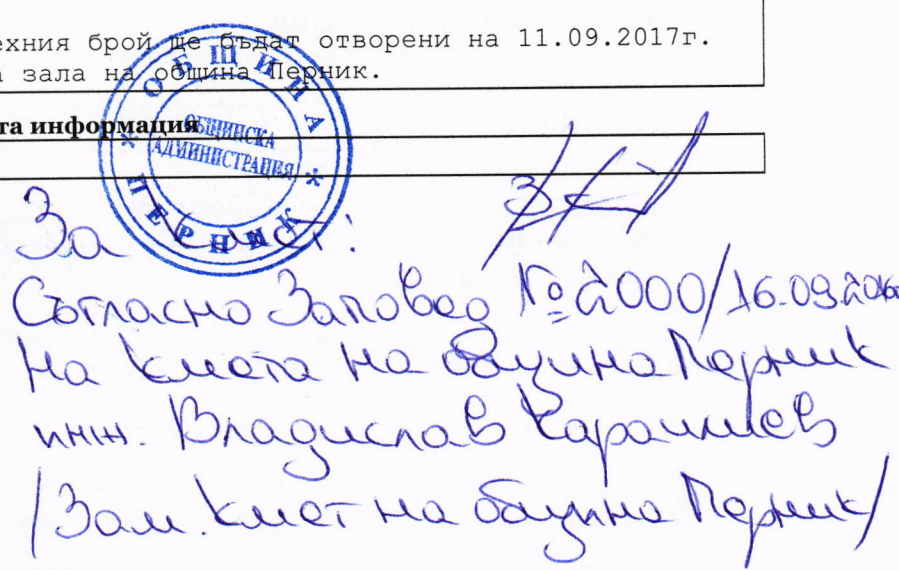 ехния брой ще бъдат отворени на 11.09.2017г.
а зала на община Перник.
та информация
ОБЩИНА
ПЕРНИК
ОБЩИНСКА
АДМИНИСТРАЦИЯ
За Кмет:
Съгласно Заповед № 2000/16.09.2016
на кмета на община Перник
инж. Владислав Караилиев
/Зам. кмет на община Перник/